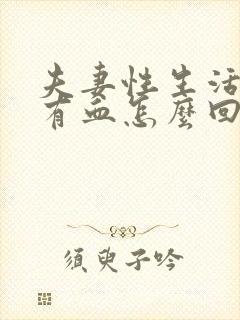 夫妻性生活
有血怎麼回
須臾子吟